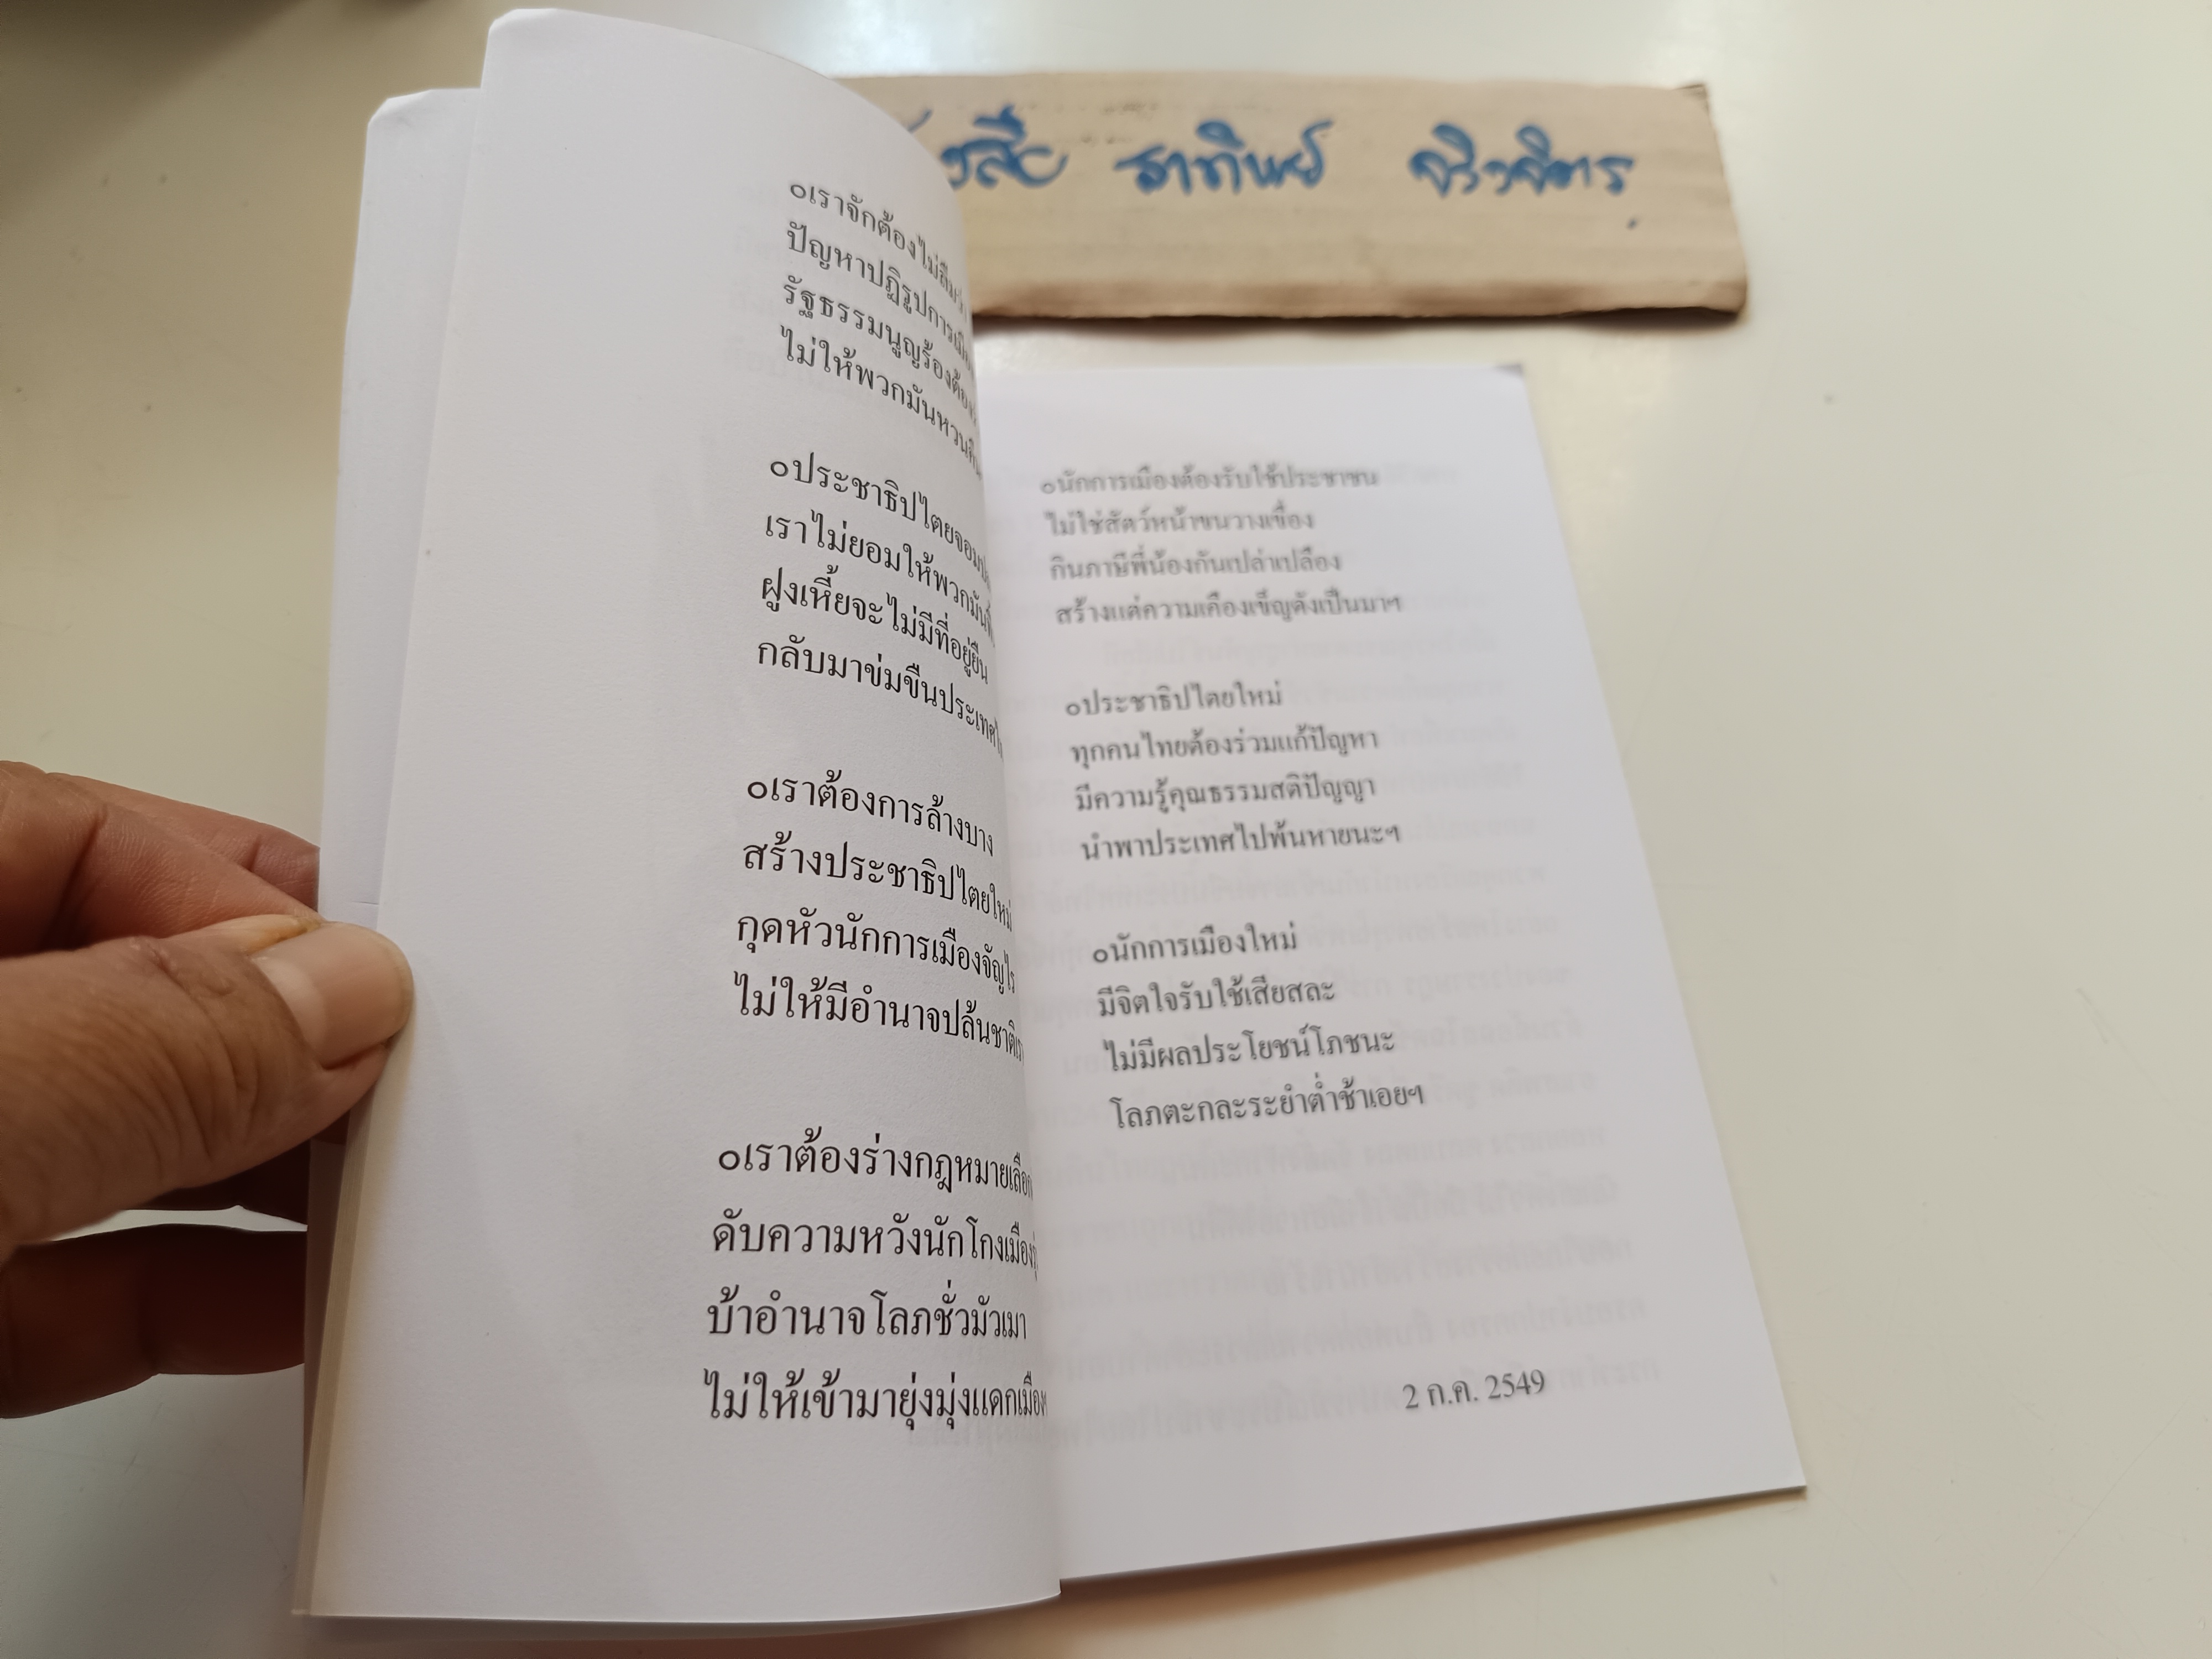 ๐เราจักต้องไม่ลืม
ปัญหาปฏิรูปการเมือง
รัฐธรรมนูญร้องต้อง
ไม่ให้พวกมันหวนคืน
๐ประชาธิปไตยจอมปลอม
เราไม่ยอมให้พวกมัน
ฝูงเหี้ยจะไม่มีที่อยู่ยืน
กลับมาข่มขืนประเทศ
๐เราต้องการล้างบาง
สร้างประชาธิปไตยใหม่
กุดหัวนักการเมืองจัญไร
ไม่ให้มีอำนาจปล้นชาติ
๐เราต้องร่างกฎหมายเลือก
ดับความหวังนักโกงเมือง
บ้าอำนาจโลภชั่วมัวเมา
ไม่ให้เข้ามายุ่งมุ่งแดกเมืองฯ
๐นักการเมืองต้องรับใช้ประชาชน
ไม่ใช่สัตว์หน้าขนวางเขื่อง
กินภาษีพี่น้องกันเปล่าเปลือง
สร้างแต่ความเคืองเข็ญดังเป็นมาฯ
๐ประชาธิปไตยใหม่
ทุกคนไทยต้องร่วมแก้ปัญหา
มีความรู้คุณธรรมสติปัญญา
นำพาประเทศไปพ้นหายนะฯ
๐นักการเมืองใหม่
มีจิตใจรับใช้เสียสละ
ไม่มีผลประโยชน์โภชนะ
โลภตะกละระยำต่ำช้าเอยฯ
2 ก.ค. 2549